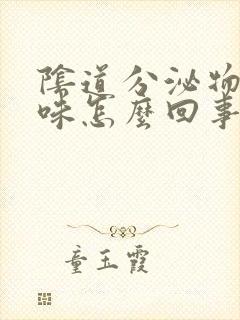 陰道分泌物
味怎麼回事
童玉霞